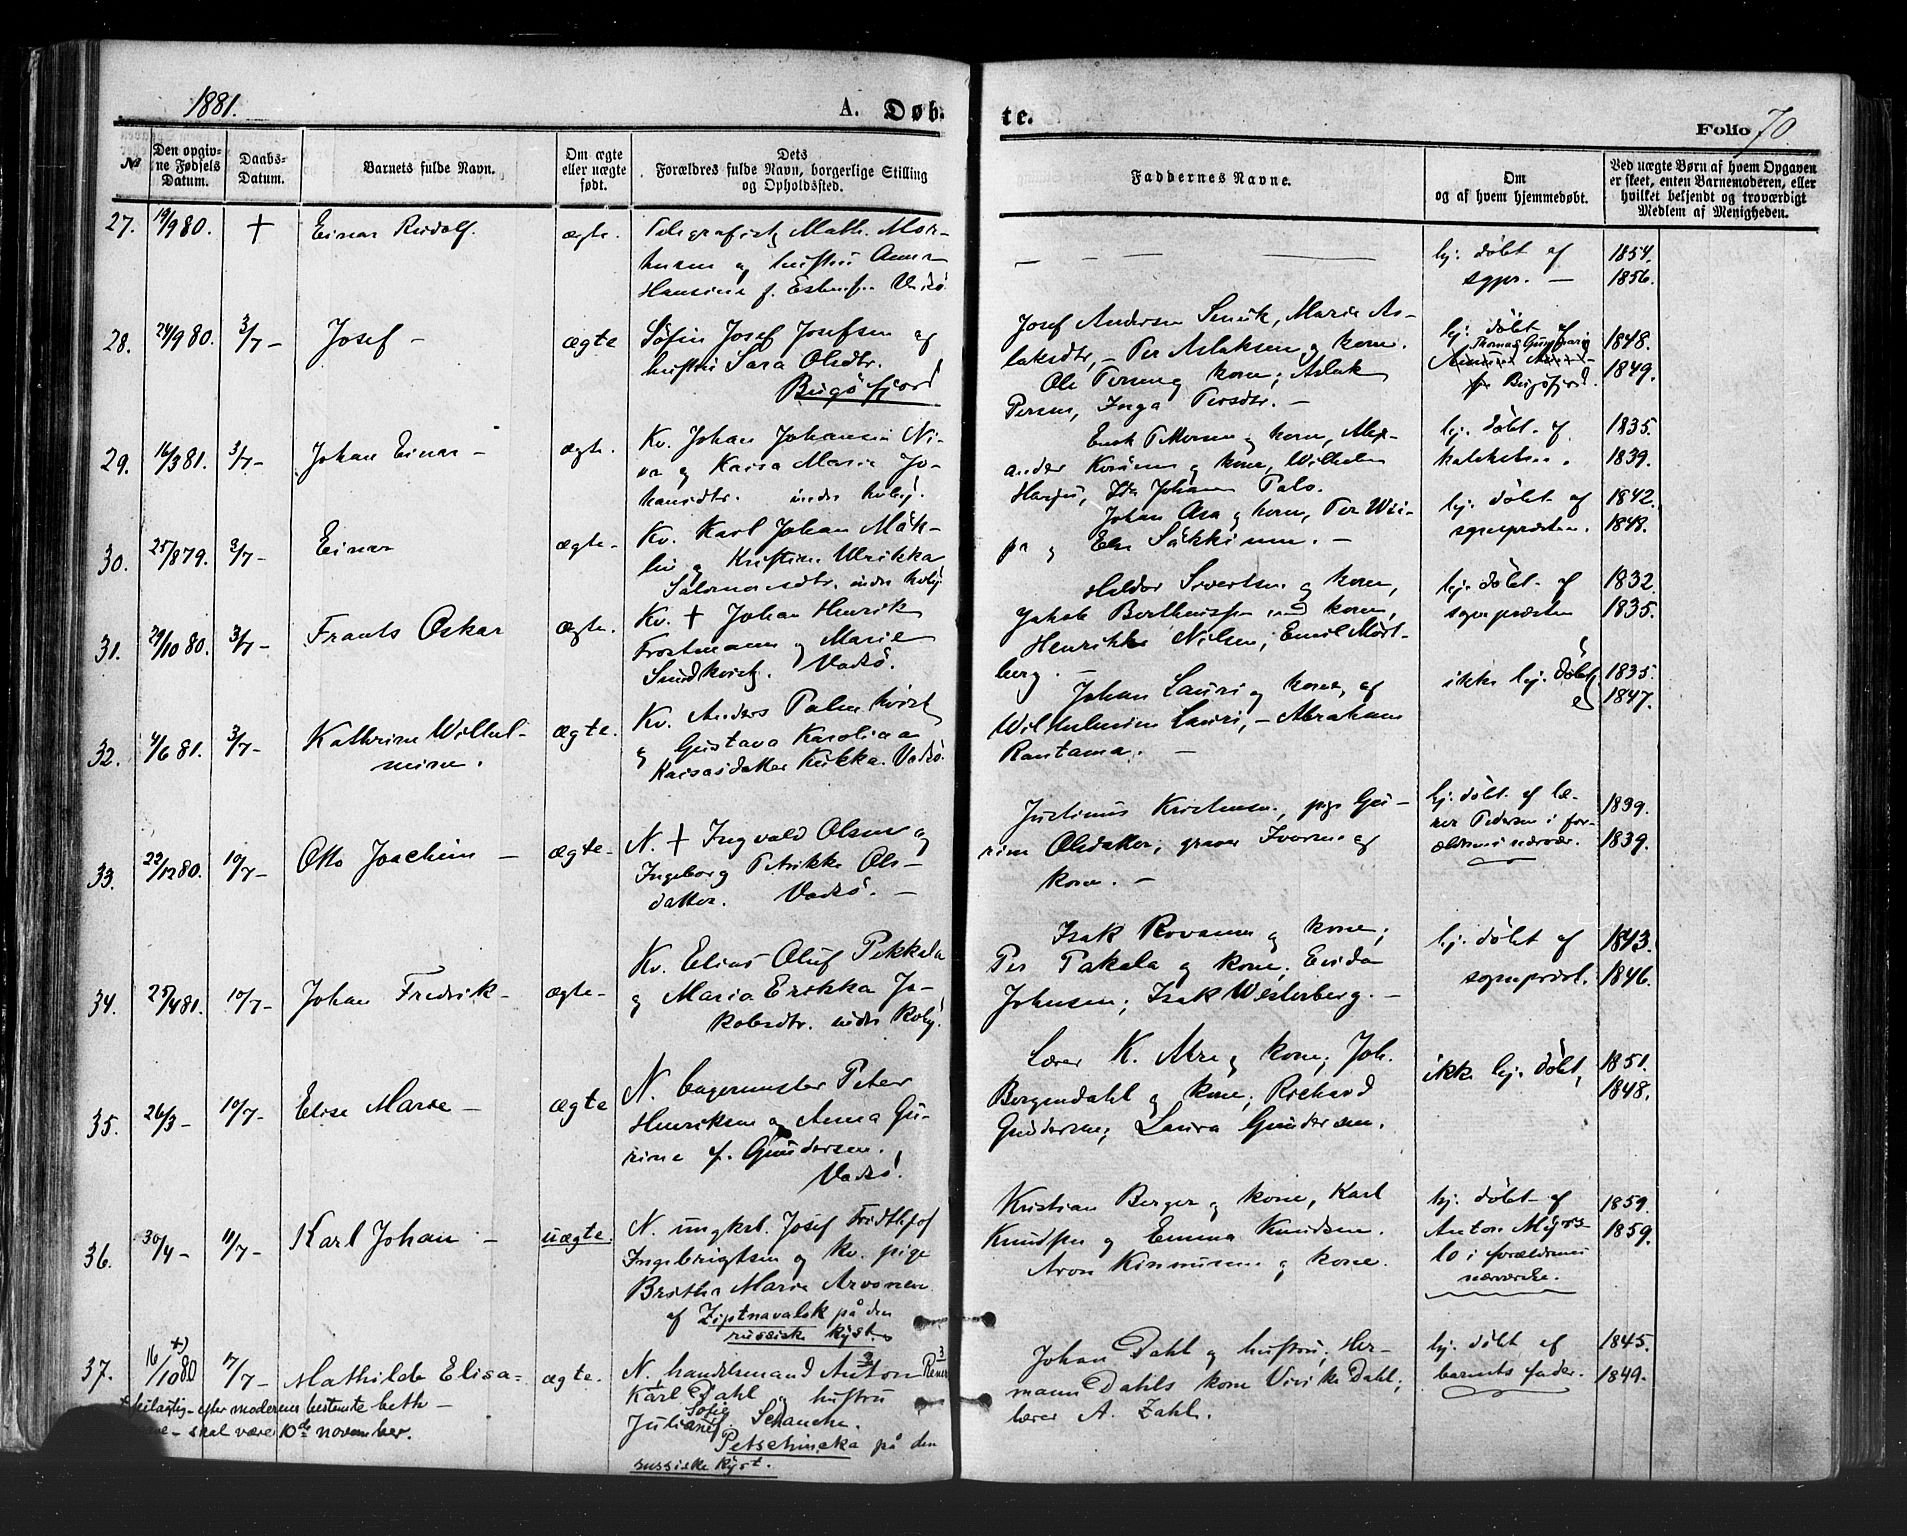 1881.
A. Døb-
te.
Folio 70.
№
Den opgiv-
ne Fødsels
Datum.
Daabs-
Datum.
Barnets fulde Navn.
Om ægte
eller uægte
født.
Dets
Forældres fulde Navn, borgerlige Stilling
og Opholdssted.
Faddernes Navne.
Om
og af hvem hjemmedøbt.
Ved uægte Børn af hvem Opgaven
er skeet, enten Barnemoderen, eller
hvilket bekjendt og troværdigt
Medlem af Menigheden.
27. 19/9 80. + Einar Rudolf. ægte.
Telegrafist Math. Mor-
tensen og hustru Anna
Hansine f. Vadsö
— — —
hj. döbt af
sgpr. —
1854.
1856.
28. 24/9 80. 3/7 - Josef - ægte
Söfin Josef Josefsen og
hustru Sara Olsdtr.
Bugöfjord!
Josef Andersen Maria As-
laksdtr, - Per Aslaksen og kone.
Ole Persen og kone; Aslak
Persen, Inga Persdtr. -
hj. döbt af
Thomas
Bugöfjord.
1848.
1849.
29. 16/3 81. 3/7 - Johan Einar - ægte.
Kv. Johan Johansen Ni-
va og Kaisa Maria Jo-
hansdtr. indre kvby.
Erik Pettersen og kone, Alex-
ander og kone, Wilhelm
Harju, Ida Johana Palo.
hj. döbt af
kateketen.
1835.
1839.
30. 25/8 79. 3/7 - Einar ægte -
Kv. Karl Johan Mäk-
lin og Kristine Ulrikka
Salomonsdtr. indre kvby.
Johan Asa og kone, Per Wii-
pa og Else Säkkinen. -
hj. döbt af
sognepræsten.
1842.
1848.
31. 29/10 80. 3/7 - Frants Oskar ægte.
Kv. + Johan Henrik
Frostmann og Marie
Sundkvist. Vadsö.
Haldor Sivertsen og kone,
Jakob Berthinissen med kone,
Henrikke Nilsen; Emil Mört-
berg. -
hj. döbt af
sognepræsten
1832.
1835.
32. 4/6 81. 3/7 - Kathrine Wilhel-
mine. ægte.
Kv. Anders Palmkvist
og Gustava Karolina
Kaisasdatter Kukka. Vadsö.
Johan Lauri og kone, af
Wilhelmine Lauri, - Abraham
Rantama. -
ikke hj. döbt
1835.
1847.
33. 22/12 80. 10/7 - Otto Joachim - ægte -
N. + Ingvald Olsen og
Ingeborg Petrikke Ols-
datter. Vadsö. -
Justinus Kristensen, pige Gu-
rine Olsdatter, graver Ivarsen og
kone. -
hj. döbt af læ-
rer Pedersen i for-
ældrenes nærvær.
1839.
1839.
34. 25/4 81. 10/7 - Johan Fredrik - ægte -
Kv. Elias Oluf Pekkala
og Maria Erikka Ja-
kobsdtr. indre kvby.
Isak Rovanen og kone;
Per Takala og kone;
Johnsen; Isak Westerberg. -
hj. döbt af
sogneprest.
1843.
1846.
35. 26/3 - 10/7 - Elise Marie - ægte
N. bagermester Peter
Henriksen og Anna Gu-
rine f. Gundersen.
Vadsö!
Lærer K. og kone; Joh.
Bergendahl og kone; Richard
Gundersen; Laura Gundersen.
ikke hj. döbt,
1851.
1848.
36. 30/4 - 11/7 - Karl Johan - uægte.
N. ungkrl. Josef Fridthjof
Ingebrigtsen og kv. pige
Britha Maria Arvonen
af Ziptnavalok på den
russiske kyst.
Kristian Berger og kone, Karl
Knudsen og Emma Knudsen.
Aron Kinnunen og kone.
hj. döbt af
Anton
lo i forældrenes
nærværelse.
1859.
1859.
37. 16/10 80 +) 17/7 - Mathilde Elisa- ægte.
N. handelsmand Anton
Karl Dahl og hustru
Juliane Sofie f. Schanche.
Petschinska på den
russiske kyst.
+ feilagtig - efter moderens bestemte beth-
- skal være 10de november.
Johan Dahl og hustru; Her-
mann Dahls kone Vivike Dahl;
lærer A. Zahl.
hj. döbt af
barnets fader.
1845.
1849.